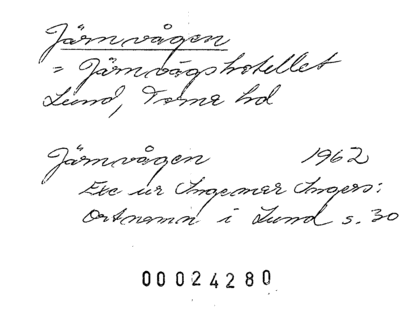 Järnvågen
= Järnvågshotellet
Lund, Torna hd
Järnvågen 1962
Exc ur Ingemar Ingers:
Ortnamn i Lund s. 30
00024280